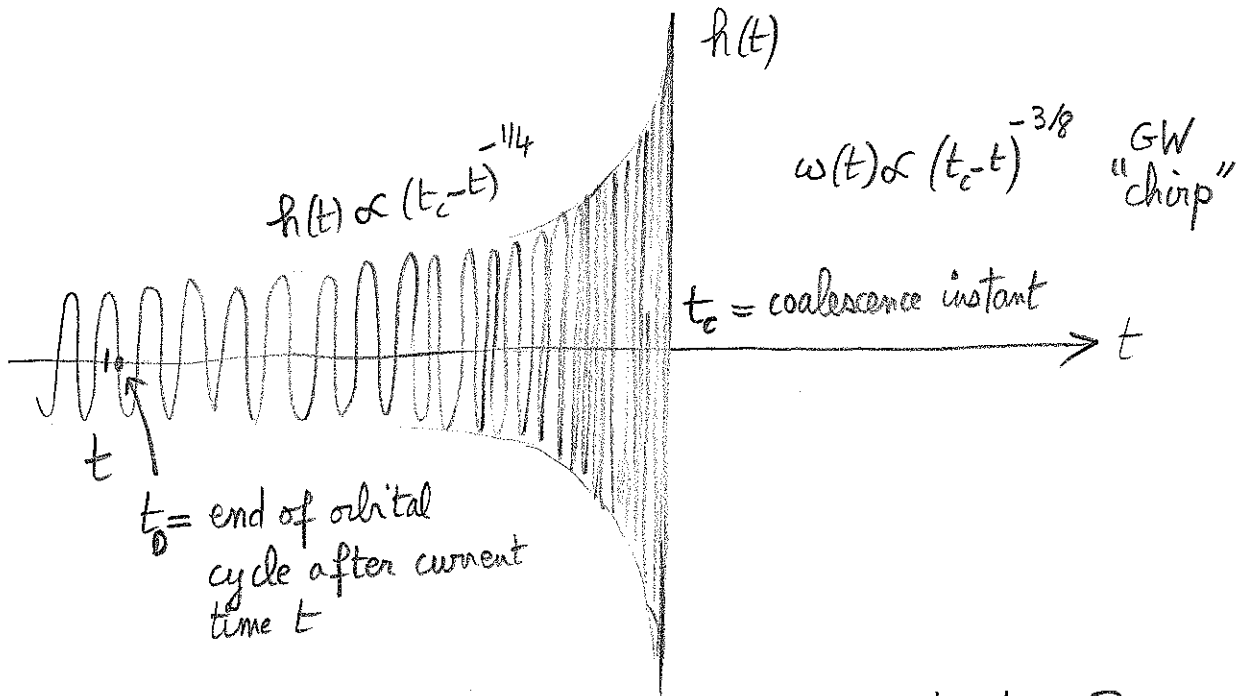 h(t)
h(t) ∝ (t_c-t)^{-1/4}
ω(t) ∝ (t_c-t)^{-3/8} GW
"chirp"
t_c = coalescence instant
t
t
t_0 = end of orbital
cycle after current
time t